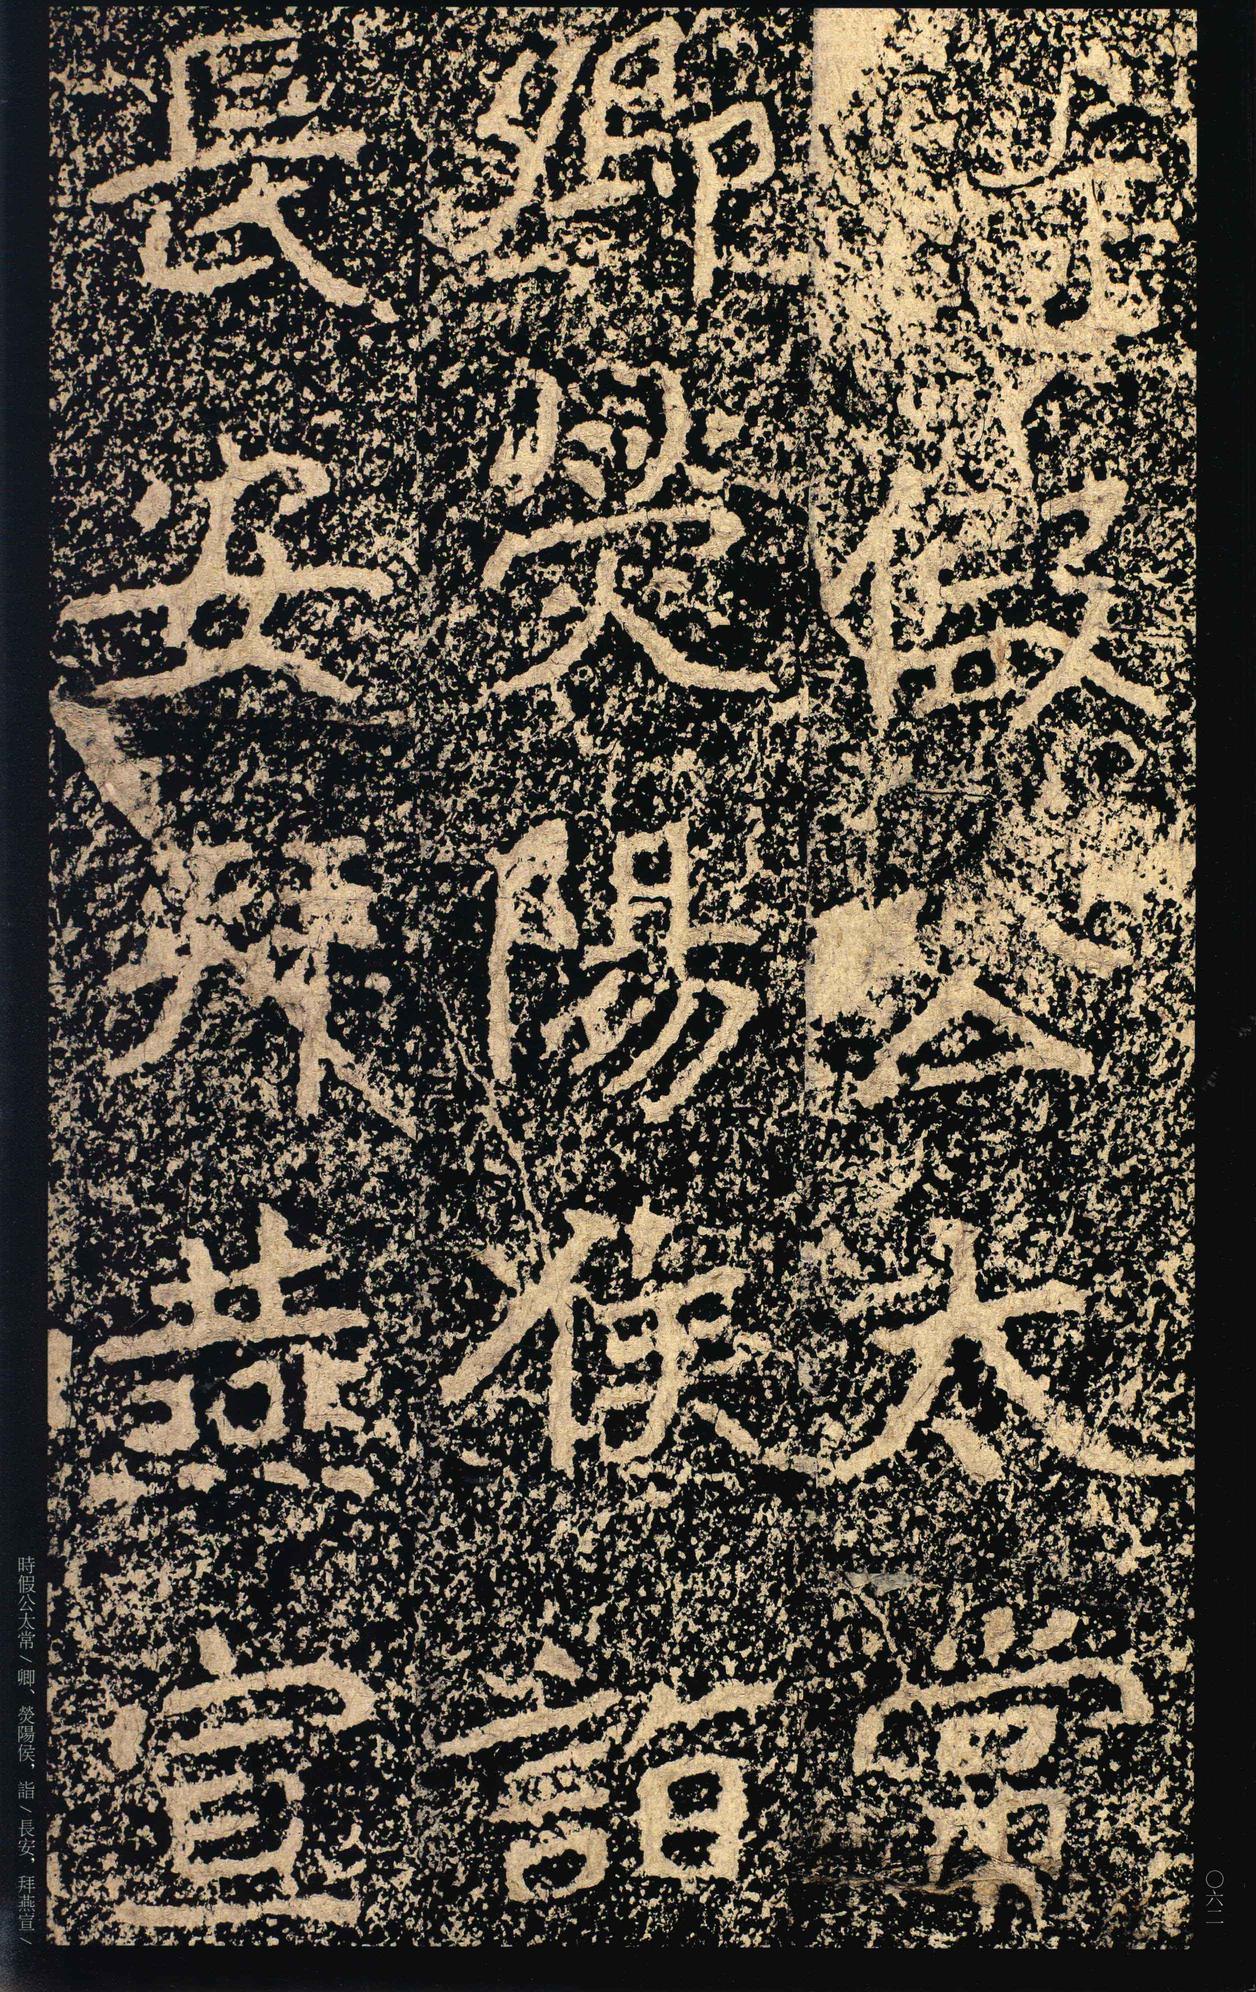 時假公太常
卿熒陽侯詣
長安拜燕宣
時假公太常/卿、熒陽侯，詣/長安，拜燕宣/
〇六二